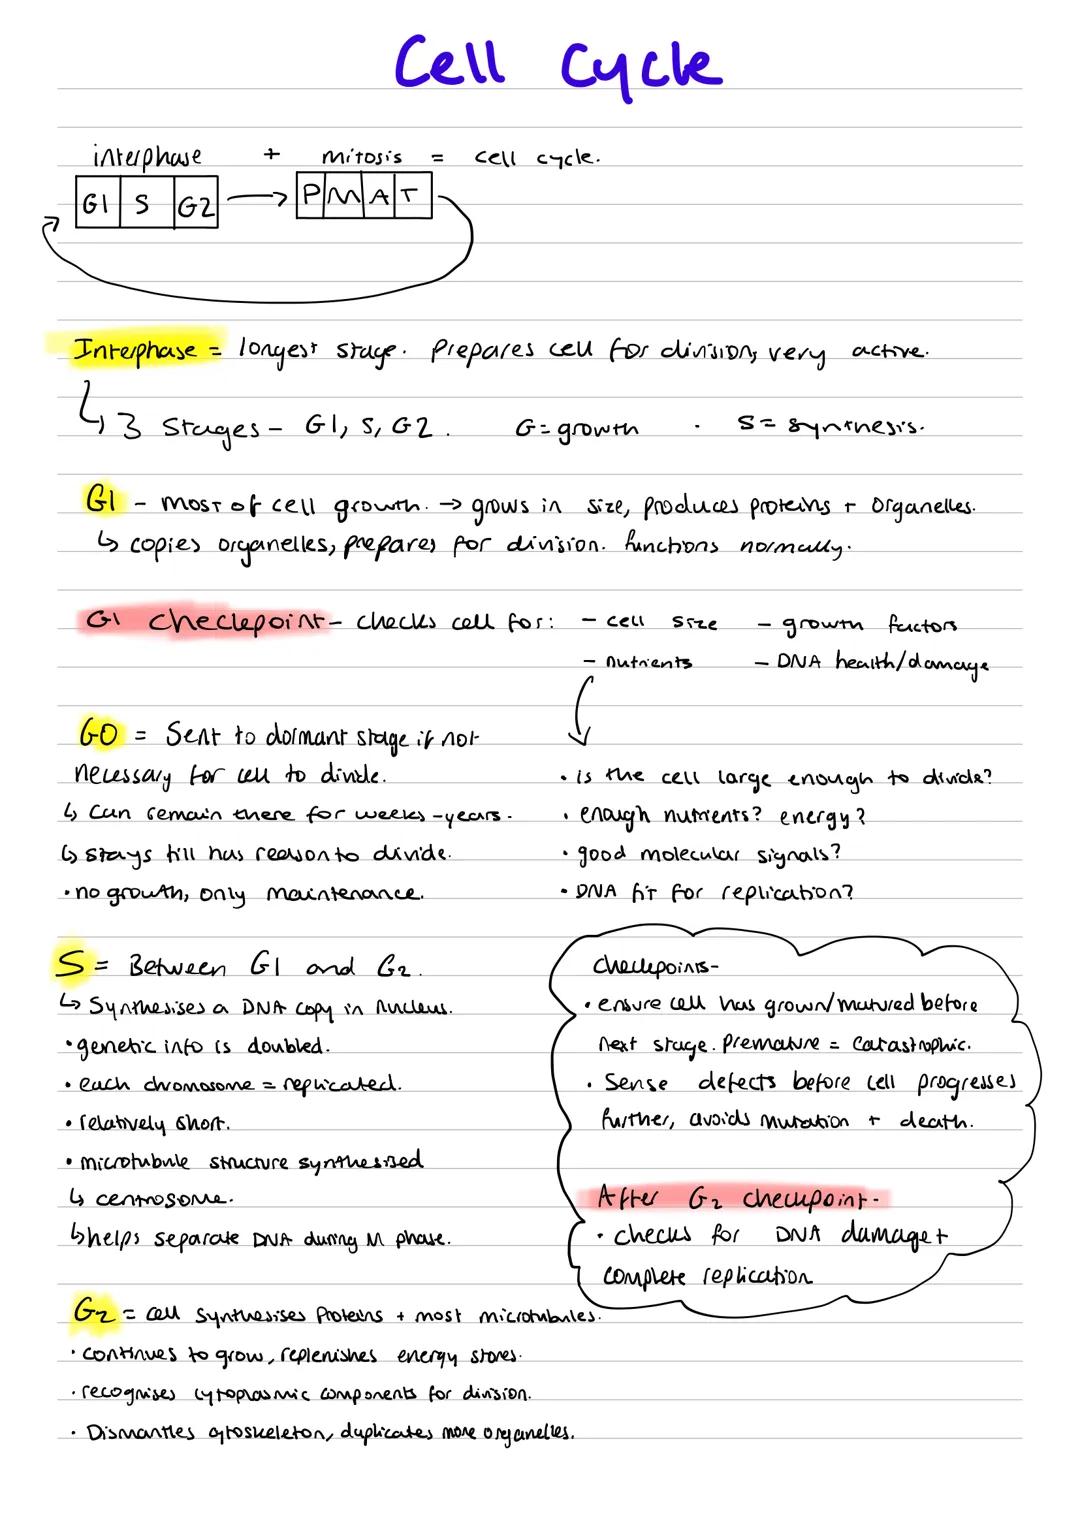 Cell Cycle
interphase + mitosis = cell cycle.
G1 S G2 → P M A T
Interphase = longest stage. Prepares cell for division, very active.
↳ 3 Stages - G1, S, G2. G = growth . S = synthesis.
G1 - most of cell growth. → grows in size, produces proteins + organelles.
↳ copies organelles, prepares for division. functions normally.
G1 checkpoint - checks cell for: - cell size - growth factors
- nutrients - DNA health/damage
G0 = Sent to dormant stage if not
necessary for cell to divide.
↳ can remain there for weeks - years.
↳ stays till has reason to divide.
• no growth, only maintenance.
• is the cell large enough to divide?
• enough nutrients? energy?
• good molecular signals?
• DNA fit for replication?
S = Between G1 and G2.
↳ Synthesises a DNA copy in nucleus.
• genetic info is doubled.
• each chromosome = replicated.
• relatively short.
• microtubule structure synthesised
↳ centrosome.
↳ helps separate DNA during M phase.
Checkpoints-
• ensure cell has grown/matured before
next stage. Premature = catastrophic.
• Sense defects before cell progresses
further, avoids mutation + death.
After G2 checkpoint -
• checks for DNA damage +
complete replication
G2 = cell synthesises proteins + most microtubules.
• continues to grow, replenishes energy stores.
• recognises cytoplasmic components for division.
• Dismantles cytoskeleton, duplicates more organelles.